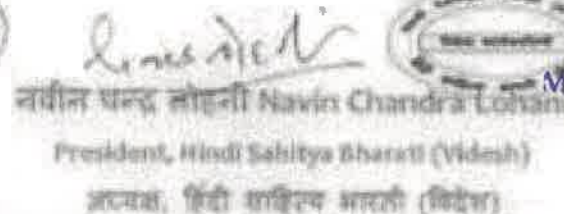 नवीन चन्द्र लोहनी Navin Chandra Lohani
President, Hindi Sahitya Bharati (Videsh)
अध्यक्ष, हिंदी साहित्य भारती (विदेश)